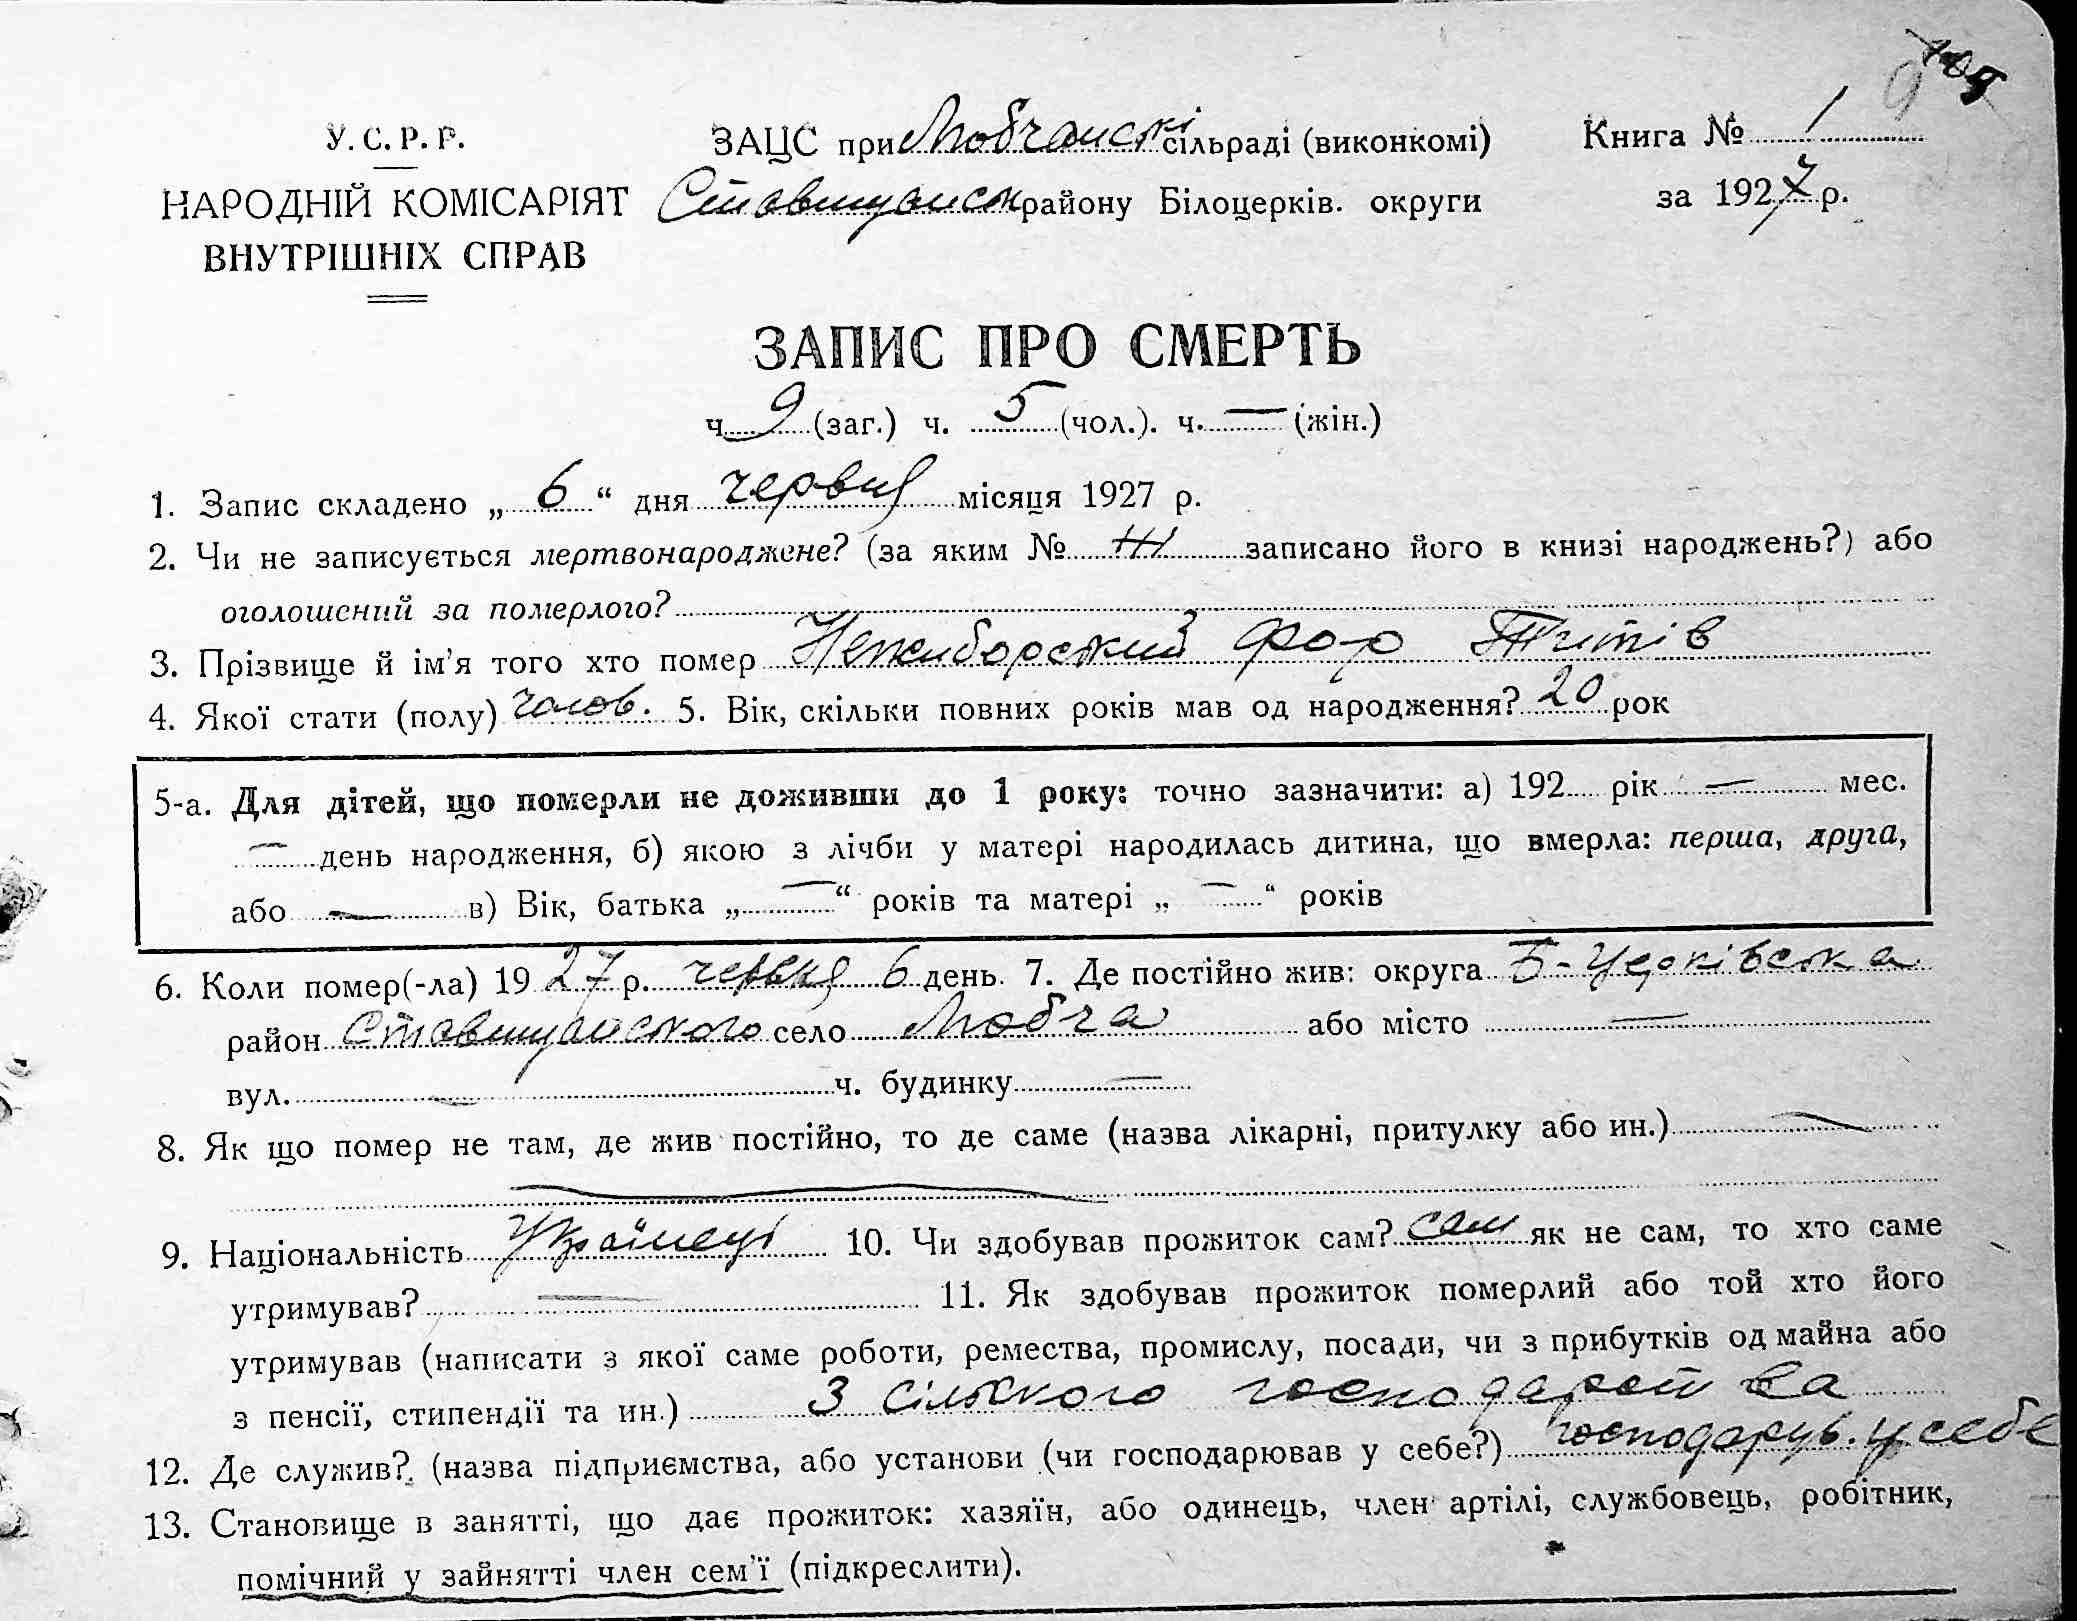 У. С. Р. Р.
НАРОДНІЙ КОМІСАРІЯТ
ВНУТРІШНІХ СПРАВ
ЗАЦС при Любчанскі сільраді (виконкомі)
Ставищанськ району Білоцерків. округи
Книга № 1
за 1927 р.
ЗАПИС ПРО СМЕРТЬ
ч. 9 (заг.) ч. 5 (чол.). ч. — (жін.)
1. Запис складено „ 6 “ дня червня місяця 1927 р.
2. Чи не записується мертвонароджене? (за яким № записано його в книзі народжень?) або
оголошений за померлого?
3. Прізвище й ім'я того хто помер Неживборський Титів
4. Якої стати (полу) чолов. 5. Вік, скільки повних років мав од народження? 20 рок
5-а. Для дітей, що померли не доживши до 1 року: точно зазначити: а) 192 рік — мес.
— день народження, б) якою з лічби у матері народилась дитина, що вмерла: перша, друга,
або — в) Вік, батька „ — “ років та матері „ — “ років
6. Коли помер(-ла) 19 27 р. червня 6 день. 7. Де постійно жив: округа Б-Церківська
район Ставищанского село Любча або місто —
вул. — ч. будинку —
8. Як що помер не там, де жив постійно, то де саме (назва лікарні, притулку або ин.) —
9. Національність Українець 10. Чи здобував прожиток сам? сам як не сам, то хто саме
утримував? — 11. Як здобував прожиток померлий або той хто його
утримував (написати з якої саме роботи, ремества, промислу, посади, чи з прибутків од майна або
з пенсії, стипендії та ин.) З сільского господарства
12. Де служив? (назва підприємства, або установи (чи господарював у себе?) господарув. у себе
13. Становище в занятті, що дає прожиток: хазяїн, або одинець, член артілі, службовець, робітник,
помічний у зайнятті член сем'ї (підкреслити).